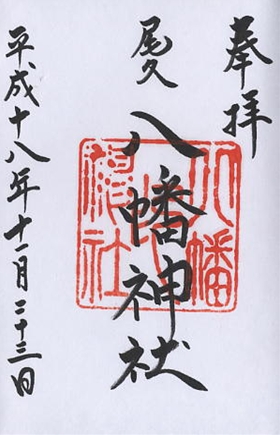 奉拝
尾久
八幡神社
平成十八年十一月二十三日
八幡神社